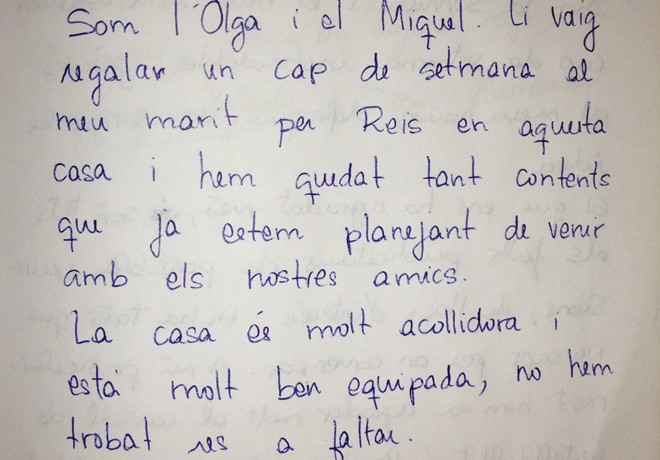 Som l'Olga i el Miquel. Li vaig
regalar un cap de setmana al
meu marit per Reis en aquesta
casa i hem quedat tant contents
que ja estem planejant de venir
amb els nostres amics.
La casa és molt acollidora i
està molt ben equipada, no hem
trobat res a faltar.